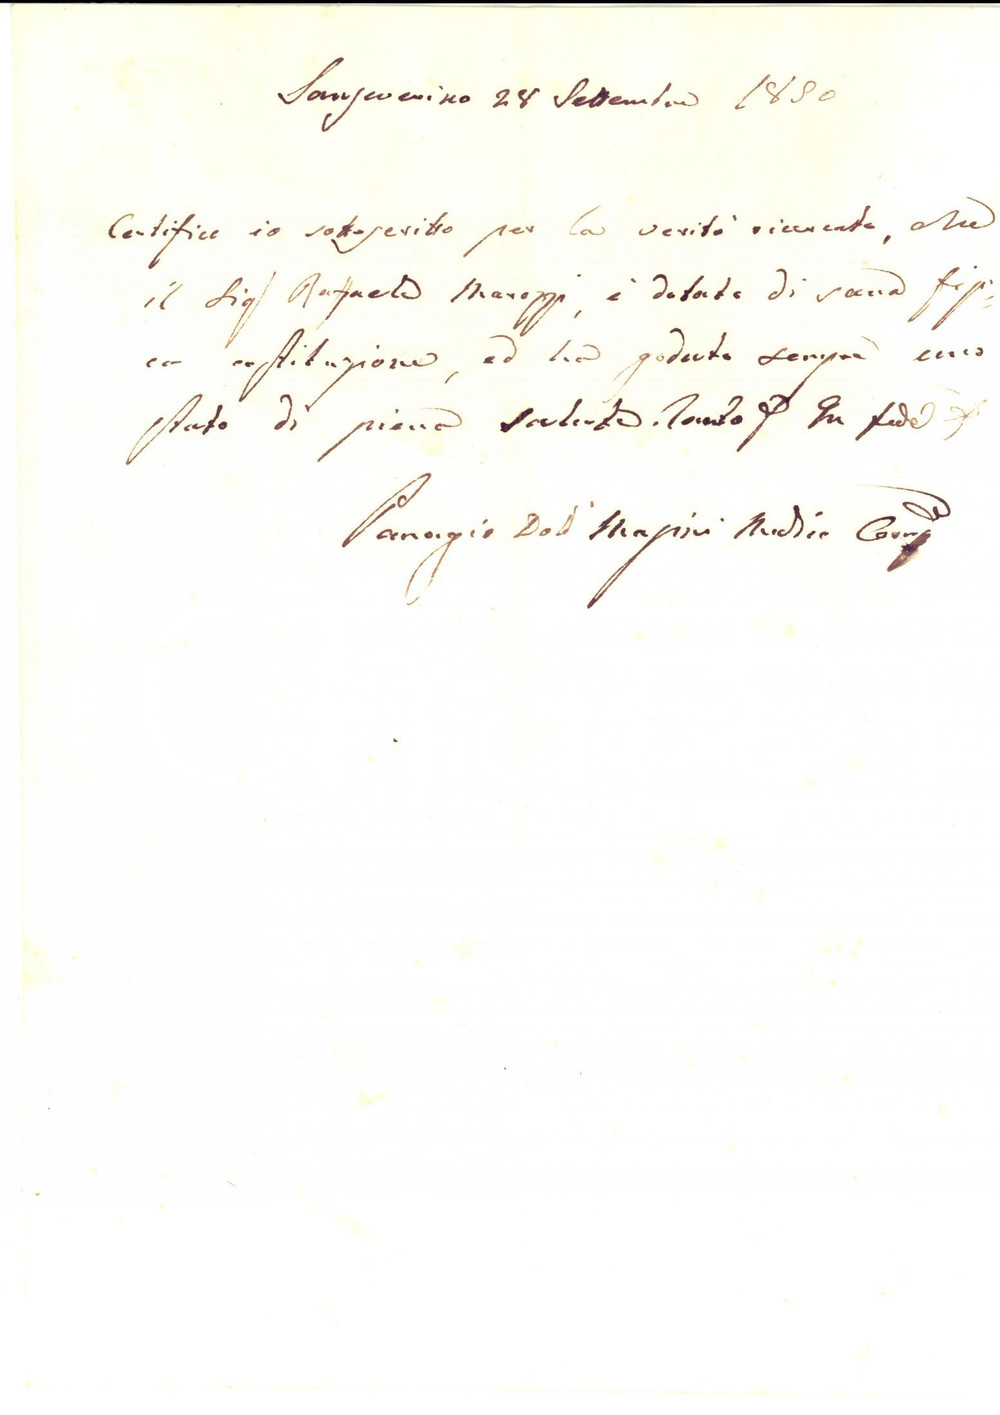 Sanseverino 28 Settembre 1850
Certifico io sottoscritto per la verità ricercato, che
il Sigr Raffaele Marozzi, è dotato di sana fisi=
ca costituzione, ed ha goduto sempre uno
stato di piena salute. Tanto In fede
Panagio Dott Masini Medico Comp